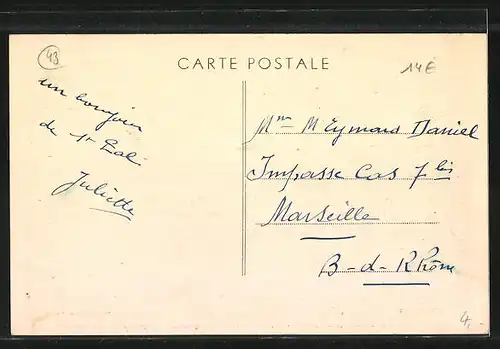 43
CARTE POSTALE
14€
un bonjour
de St
Juliette
Mme M Eymard Daniel
Impasse Cas 7 bis
Marseille
B-d-RRône
4,